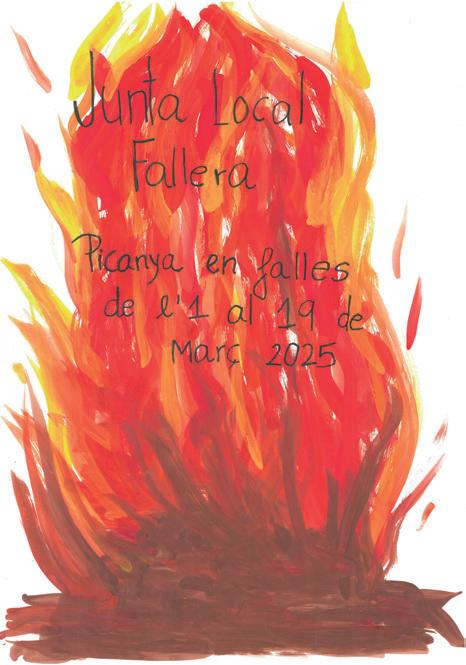 Junta Local
Fallera
Picanya en falles
de l'1 al 19 de
Març 2025